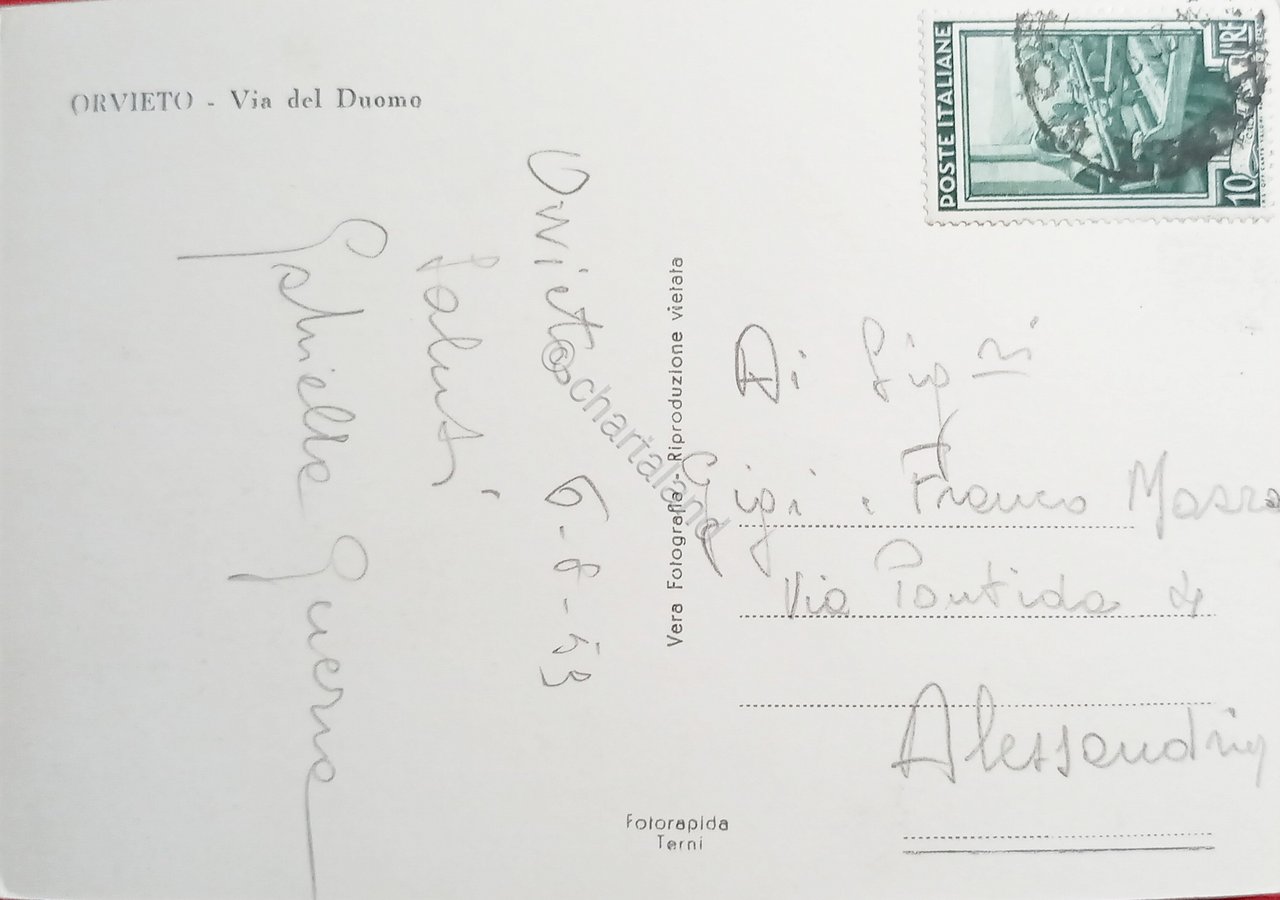 ORVIETO - Via del Duomo
Orvieto 6-8-53
Saluti
Gabriella Guerra
Vera Fotografia - Riproduzione vietata
Fotorapida
Terni
POSTE ITALIANE
10 LIRE
Gigi e Franco
Via Pontida 4
Alessandria
©chartaland